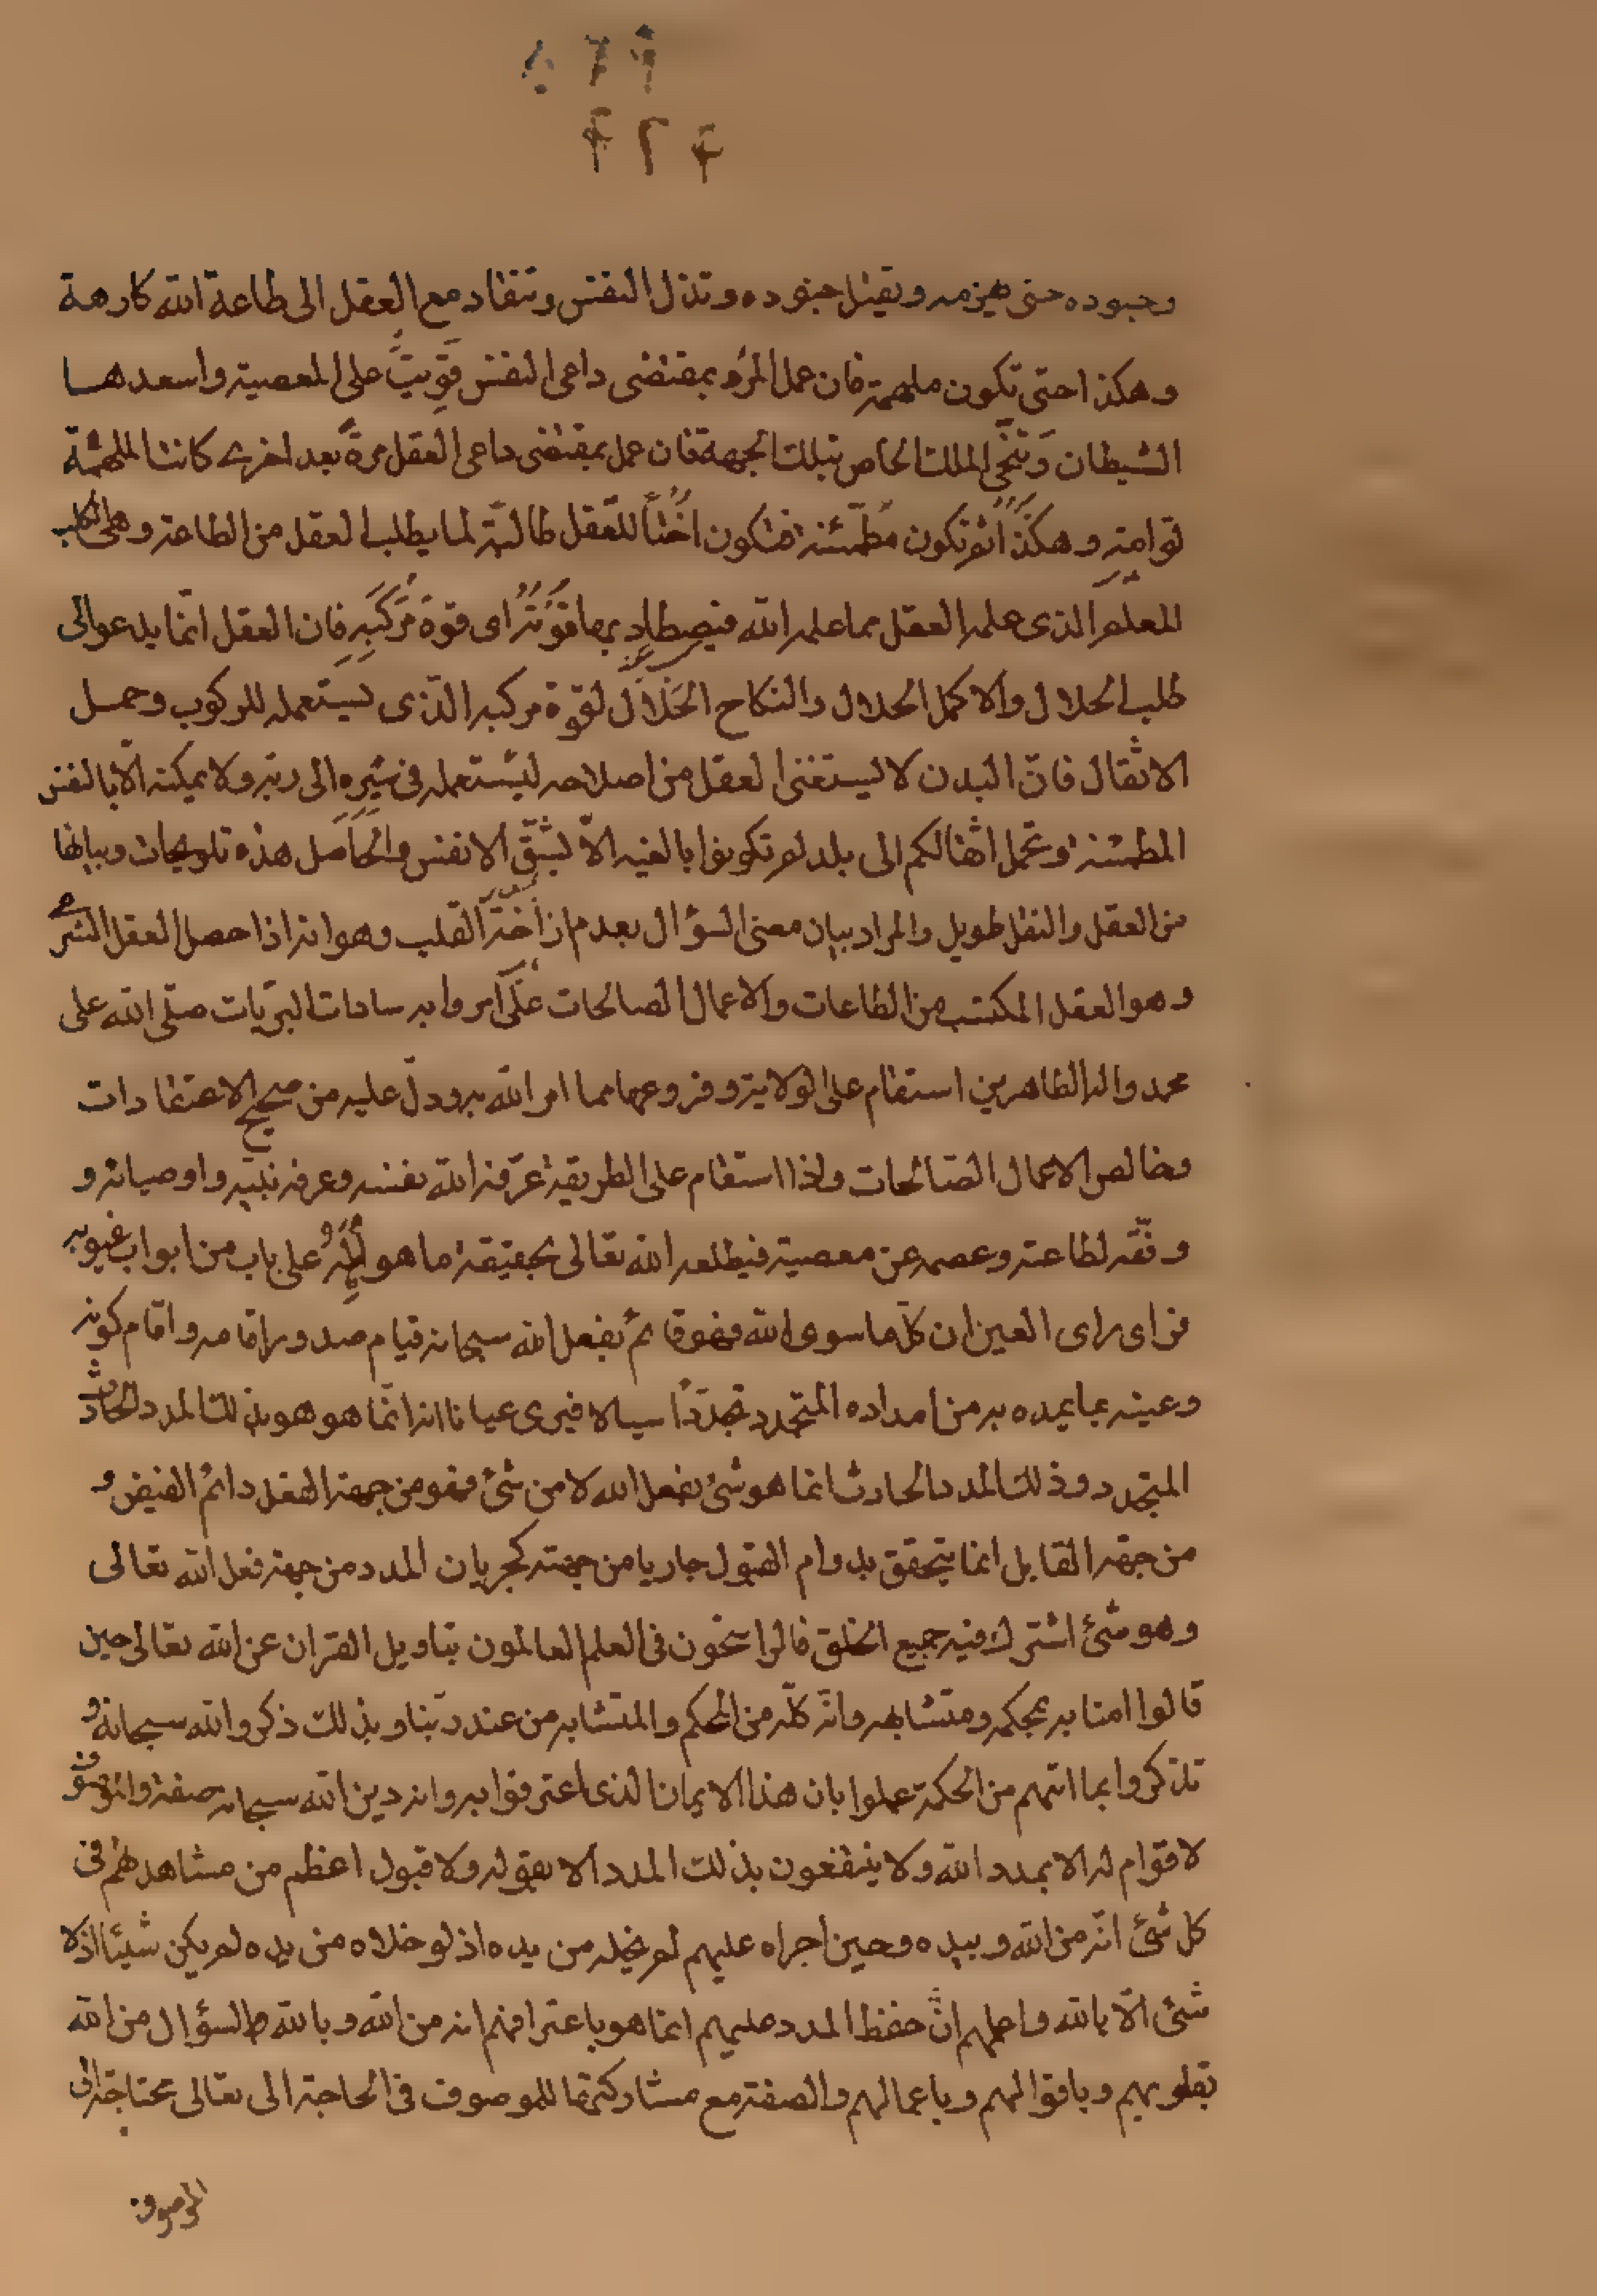 وجنوده حتى يهزمه ويقتل جنوده وتذل النفس وتنقاد مع العقل الى طاعة الله كارهة
وهكذا حتى تكون ملهمة فان عمل المرء بمقتضى داعى النفس قويت على المعصية واسعدها
الشيطان وتنحى الملك الخاص بتلك الجهة فان عمل بمقتضى داعى العقل مرة بعد اخرى كانت الملهمة
لوامة وهكذا ثم تكون مطمئنة فتكون اختا للعقل طالبة لما يطلب العقل من الطاعة وهى الكلب
المعلم الذى علمه العقل مما علمه الله فيصطاد بها قوته اى قوة مركبه فان العقل انما يدعو الى
طلب الحلال والاكل الحلال والنكاح الحلال لقوة مركبه الذى يستعمله للركوب وحمل
الاثقال فان البدن لا يستغنى العقل من اصلاحه ليستعمله فى سيره الى ربه ولا يمكنه الا بالنفس
المطمئنة وتحمل اثقالكم الى بلد لم تكونوا بالغيه الا بشق الانفس والحاصل هذه تلويحات وبيانها
من العقل والنقل طويل والمراد بيان معنى السؤال بعدم ازاغة القلب وهو انه اذا حصل العقل الشرعى
وهو العقل المكتسب من الطاعات والاعمال الصالحات على ما امروا به سادات البريات صلى الله على
محمد واله الطاهرين استقام على الولاية وفروعها مما امر الله به ودل عليه من صحيح الاعتقادات
وخالص الاعمال الصالحات واذا استقام على الطريقة عرفه الله نفسه وعرفه نبيه واوصيائه و
وفقه لطاعته وعصمه عن معصيته فيطلعه الله تعالى بحقيقة ما هو اهله على باب من ابواب غيوبه
فراى راى العين ان كل ما سوى الله فهو قائم بفعل الله سبحانه قيام صدور اقامه واقام كونه
وعينه بما يمده به من امداده المتجدد تجددا سيالا فيرى عيانا انه انما هو هو بذلك المدد الحادث
المتجدد وذلك المدد الحادث انما هو شئ بفعل الله لا من شئ فهو من جهة الفعل دائم الفيض و
من جهة القابل انما يتحقق بدوام القبول جاريا من جهته كجريان المدد من جهة فعل الله تعالى
وهو شئ اشترك فيه جميع الخلق فالراسخون فى العلم العالمون بتاويل القران عن الله تعالى حين
قالوا امنا به بمحكمه ومتشابهه وانه كله من المحكم والمتشابه من عند ربنا وبذلك ذكروا الله سبحانه و
تذكروا بما اتيهم من الحكمة عملوا بان هذا الايمان الذى اعترفوا به وانه دين الله سبحانه صفة وانه
لا قوام له الا بمدد الله ولا ينتفعون بذلك المدد الا بقبوله ولا قبول اعظم من مشاهدتهم فى
كل شئ انه من الله وبيده وحين اجراه عليهم لم يخله من يده اذ لو خلاه من يده لم يكن شيئا اذ لا
شئ الا بالله واعلمهم ان حفظ المدد عليهم انما هو باعترافهم انه من الله وبالله والسؤال من الله
بقلوبهم وباقوالهم وباعمالهم والصفة مع مشاركتها للموصوف فى الحاجة الى تعالى محتاجة الى
الموصوف